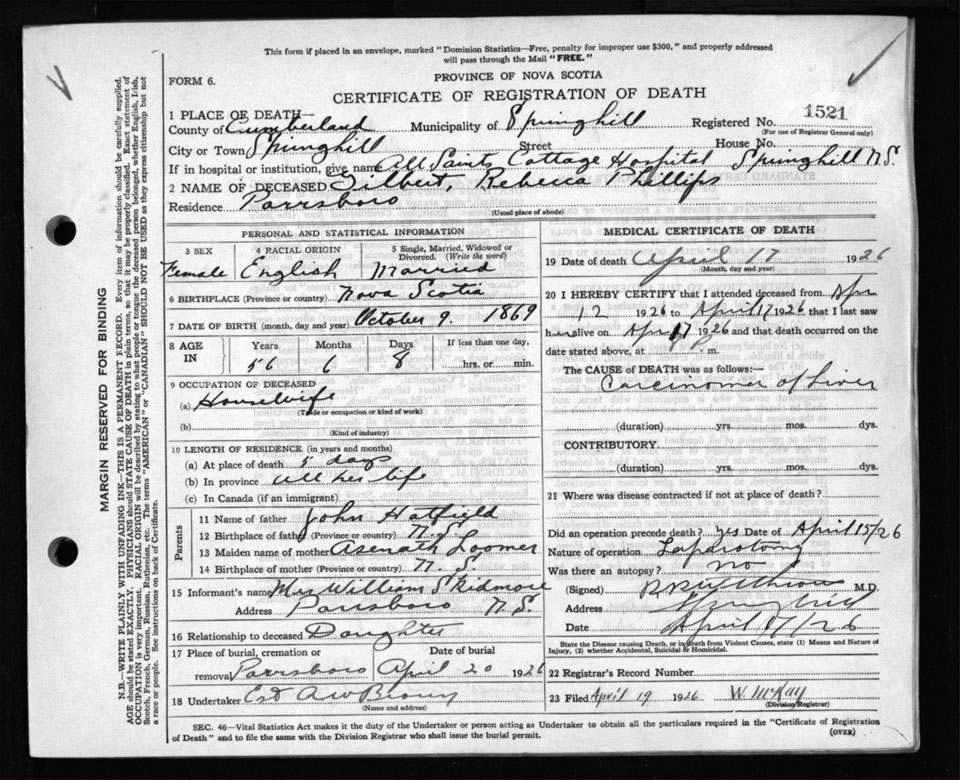 This form if placed in an envelope, marked "Dominion Statistics—Free, penalty for improper use $300," and properly addressed
will pass through the Mail "FREE."
FORM 6.
PROVINCE OF NOVA SCOTIA
CERTIFICATE OF REGISTRATION OF DEATH
Registered No. 1521
(For use of Registrar General only)
1 PLACE OF DEATH—
County of Cumberland Municipality of Springhill
City or Town Springhill Street House No.
If in hospital or institution, give name All Saints Cottage Hospital Springhill N.S.
2 NAME OF DECEASED Gilbert, Rebecca Phillips
Residence Parrsboro
(Usual place of abode)
PERSONAL AND STATISTICAL INFORMATION
3 SEX 4 RACIAL ORIGIN 5 Single, Married, Widowed or
Divorced. (Write the word)
Female English Married
6 BIRTHPLACE (Province or country) Nova Scotia
7 DATE OF BIRTH (month, day and year) October 9. 1869
8 AGE IN Years Months Days If less than one day,
56 6 8 hrs. or min.
9 OCCUPATION OF DECEASED
(a) Housewife
(Trade or occupation or kind of work)
(b)
(Kind of industry)
10 LENGTH OF RESIDENCE (in years and months)
(a) At place of death 5 days
(b) In province all her life
(c) In Canada (if an immigrant)
Parents
11 Name of father John Hatfield
12 Birthplace of father (Province or country) N.S.
13 Maiden name of mother Asenath Loomer
14 Birthplace of mother (Province or country) N. S.
15 Informant's name Mrs William Skidmore
Address Parrsboro N.S.
16 Relationship to deceased Daughter
17 Place of burial, cremation or Date of burial
removal Parrsboro April 20 1926
18 Undertaker A W Brown
(Name and address)
MEDICAL CERTIFICATE OF DEATH
19 Date of death April 17 1926
(Month, day and year)
20 I HEREBY CERTIFY that I attended deceased from Apr
12 1926 to April 17 1926 that I last saw
her alive on Apr 17 1926 and that death occurred on the
date stated above, at P. m.
The CAUSE OF DEATH was as follows:
Carcinoma of Liver
(duration) yrs. mos. dys.
CONTRIBUTORY.
(duration) yrs. mos. dys.
21 Where was disease contracted if not at place of death?
Did an operation precede death? yes Date of April 15/26
Nature of operation Laparotomy
Was there an autopsy? no
(Signed) M.D.
Address
Date April 17/26
State the Disease causing Death, or in death from Violent Causes, state (1) Means and Nature of
Injury, (2) whether Accidental, Suicidal & Homicidal.
22 Registrar's Record Number
23 Filed April 19 1926 W. McKay
(Division Registrar)
SEC. 46—Vital Statistics Act makes it the duty of the Undertaker or person acting as Undertaker to obtain all the particulars required in the "Certificate of Registration
of Death" and to file the same with the Division Registrar who shall issue the burial permit.
(OVER)
MARGIN RESERVED FOR BINDING
N.B.—WRITE PLAINLY WITH UNFADING INK—THIS IS A PERMANENT RECORD. Every item of information should be carefully supplied.
AGE should be stated EXACTLY. PHYSICIANS should STATE CAUSE OF DEATH in plain terms, so that it may be properly classified. Exact statement of
OCCUPATION is very important. RACIAL ORIGIN will be described by stating to what people or tongue the deceased person belonged, whether English, Irish,
Scotch, French, German, Russian, Ruthenian, etc. The terms "AMERICAN" or "CANADIAN" SHOULD NOT BE USED as they express citizenship but not
a race or people. See instructions on back of Certificate.